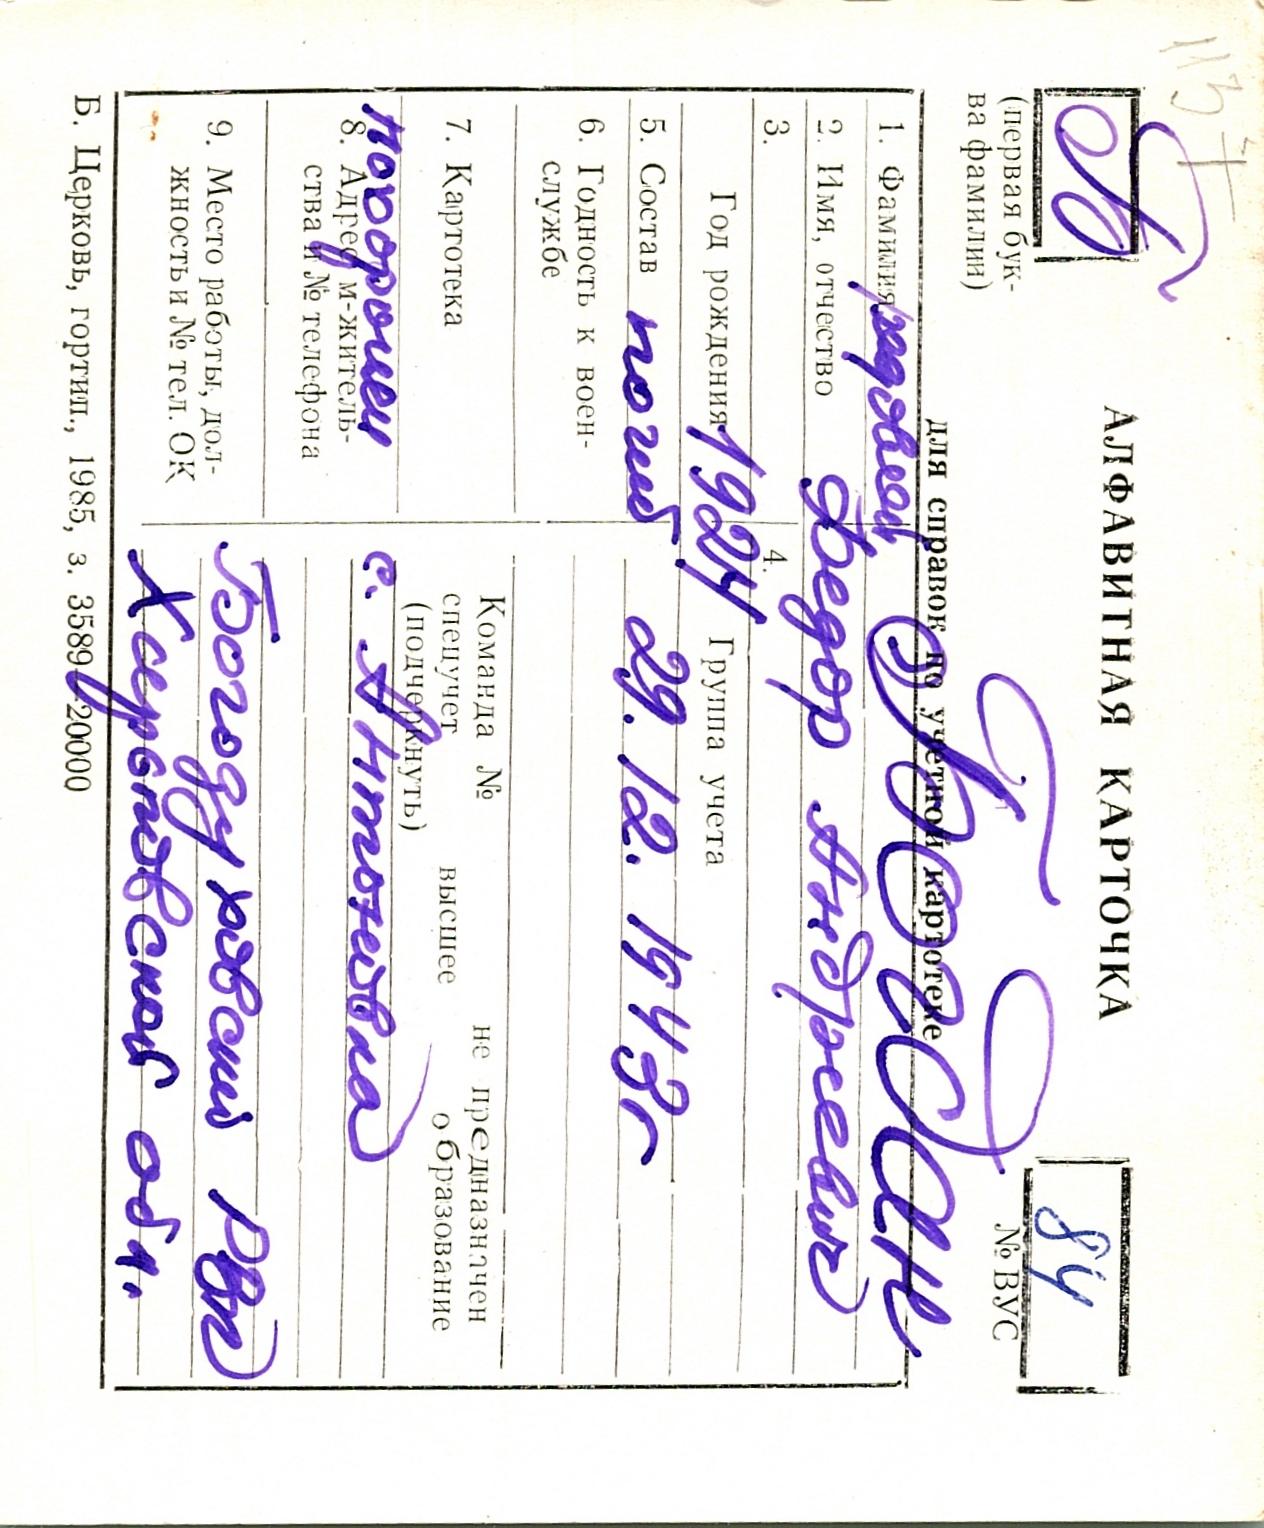 113
Б
(первая бук-
ва фамилии)
АЛФАВИТНАЯ КАРТОЧКА
для справок по учетной картотеке
84
№ ВУС
1. Фамилия рядовой
2. Имя, отчество Федор Андреевич
3.
Год рождения 1924
4.
Группа учета
5. Состав погиб 29. 12. 1943г
6. Годность к воен-
службе
7. Картотека
Команда №
спецучет
(подчеркнуть)
не предназначен
высшее образование
похоронен
8. Адрес м-житель-
ства и № телефона
с. Антоновка
9. Место работы, дол-
жность и № тел. ОК
Богодуховский РВК
Харьковской обл.
Б. Церковь, гортип., 1985, з. 3589-20000